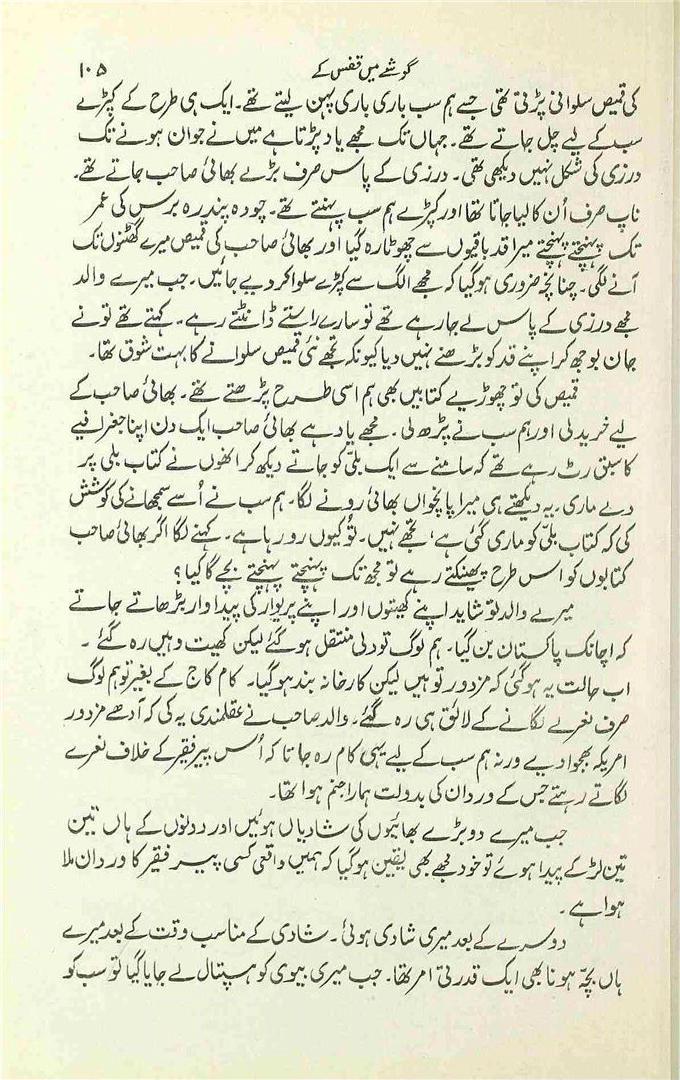 گوشے میں قفس کے ۱۰۵
کی قمیص سلوانی پڑتی تھی جسے ہم سب باری باری پہن لیتے تھے۔ ایک ہی طرح کے کپڑے
سب کے لیے چل جاتے تھے۔ جہاں تک مجھے یاد پڑتا ہے میں نے جوان ہونے تک
درزی کی شکل نہیں دیکھی تھی۔ درزی کے پاس صرف بڑے بھائی صاحب جاتے تھے۔
ناپ صرف اُن کا لیا جاتا تھا اور کپڑے ہم سب پہنتے تھے۔ چودہ پندرہ برس کی عمر
تک پہنچتے پہنچتے میرا قد باقیوں سے چھوٹا رہ گیا اور بھائی صاحب کی قمیص میرے گھٹنوں تک
آنے لگی۔ چنانچہ ضروری ہوگیا کہ مجھے الگ سے کپڑے سلوا کر دیے جائیں۔ جب میرے والد
مجھے درزی کے پاس لے جا رہے تھے تو سارے راستے ڈانٹتے رہے۔ کہتے تھے تو نے
جان بوجھ کر اپنے قد کو بڑھنے نہیں دیا کیونکہ تجھے نئی قمیص سلوانے کا بہت شوق تھا۔
قمیص کی تو چھوڑیے کتابیں بھی ہم اسی طرح پڑھتے تھے۔ بھائی صاحب کے
لیے خرید لی اور ہم سب نے پڑھ لی۔ مجھے یاد ہے بھائی صاحب ایک دن اپنا جغرافیے
کا سبق رٹ رہے تھے کہ سامنے سے ایک بلّی کو جاتے دیکھ کر انھوں نے کتاب بلی پر
دے ماری۔ یہ دیکھتے ہی میرا پانچواں بھائی رونے لگا۔ ہم سب نے اُسے سمجھانے کی کوشش
کی کہ کتاب بلّی کو ماری گئی ہے، تجھے نہیں۔ تو کیوں رو رہا ہے۔ کہنے لگا اگر بھائی صاحب
کتابوں کو اس طرح پھینکتے رہے تو مجھ تک پہنچتے پہنچتے بچے گا کیا؟
میرے والد تو شاید اپنے کھیتوں اور اپنے پریوار کی پیداوار بڑھاتے جاتے
کہ اچانک پاکستان بن گیا۔ ہم لوگ تو دلی منتقل ہو گئے لیکن کھیت وہیں رہ گئے۔
اب حالت یہ ہو گئی کہ مزدور تو ہیں لیکن کارخانہ بند ہوگیا۔ کام کاج کے بغیر تو ہم لوگ
صرف نعرے لگانے کے لائق ہی رہ گئے۔ والد صاحب نے عقلمندی یہ کی کہ آدھے مزدور
امریکہ بھجوا دیے ورنہ ہم سب کے لیے یہی کام رہ جاتا کہ اُس پیر فقیر کے خلاف نعرے
لگاتے رہتے جس کے وردان کی بدولت ہمارا جنم ہوا تھا۔
جب میرے دو بڑے بھائیوں کی شادیاں ہوئیں اور دونوں کے ہاں تین
تین لڑکے پیدا ہوئے تو خود مجھے بھی یقین ہوگیا کہ ہمیں واقعی کسی پیر فقیر کا وردان ملا
ہوا ہے۔
دوسرے کے بعد میری شادی ہوئی۔ شادی کے مناسب وقت کے بعد میرے
ہاں بچّہ ہونا بھی ایک قدرتی امر تھا۔ جب میری بیوی کو ہسپتال لے جایا گیا تو سب کو